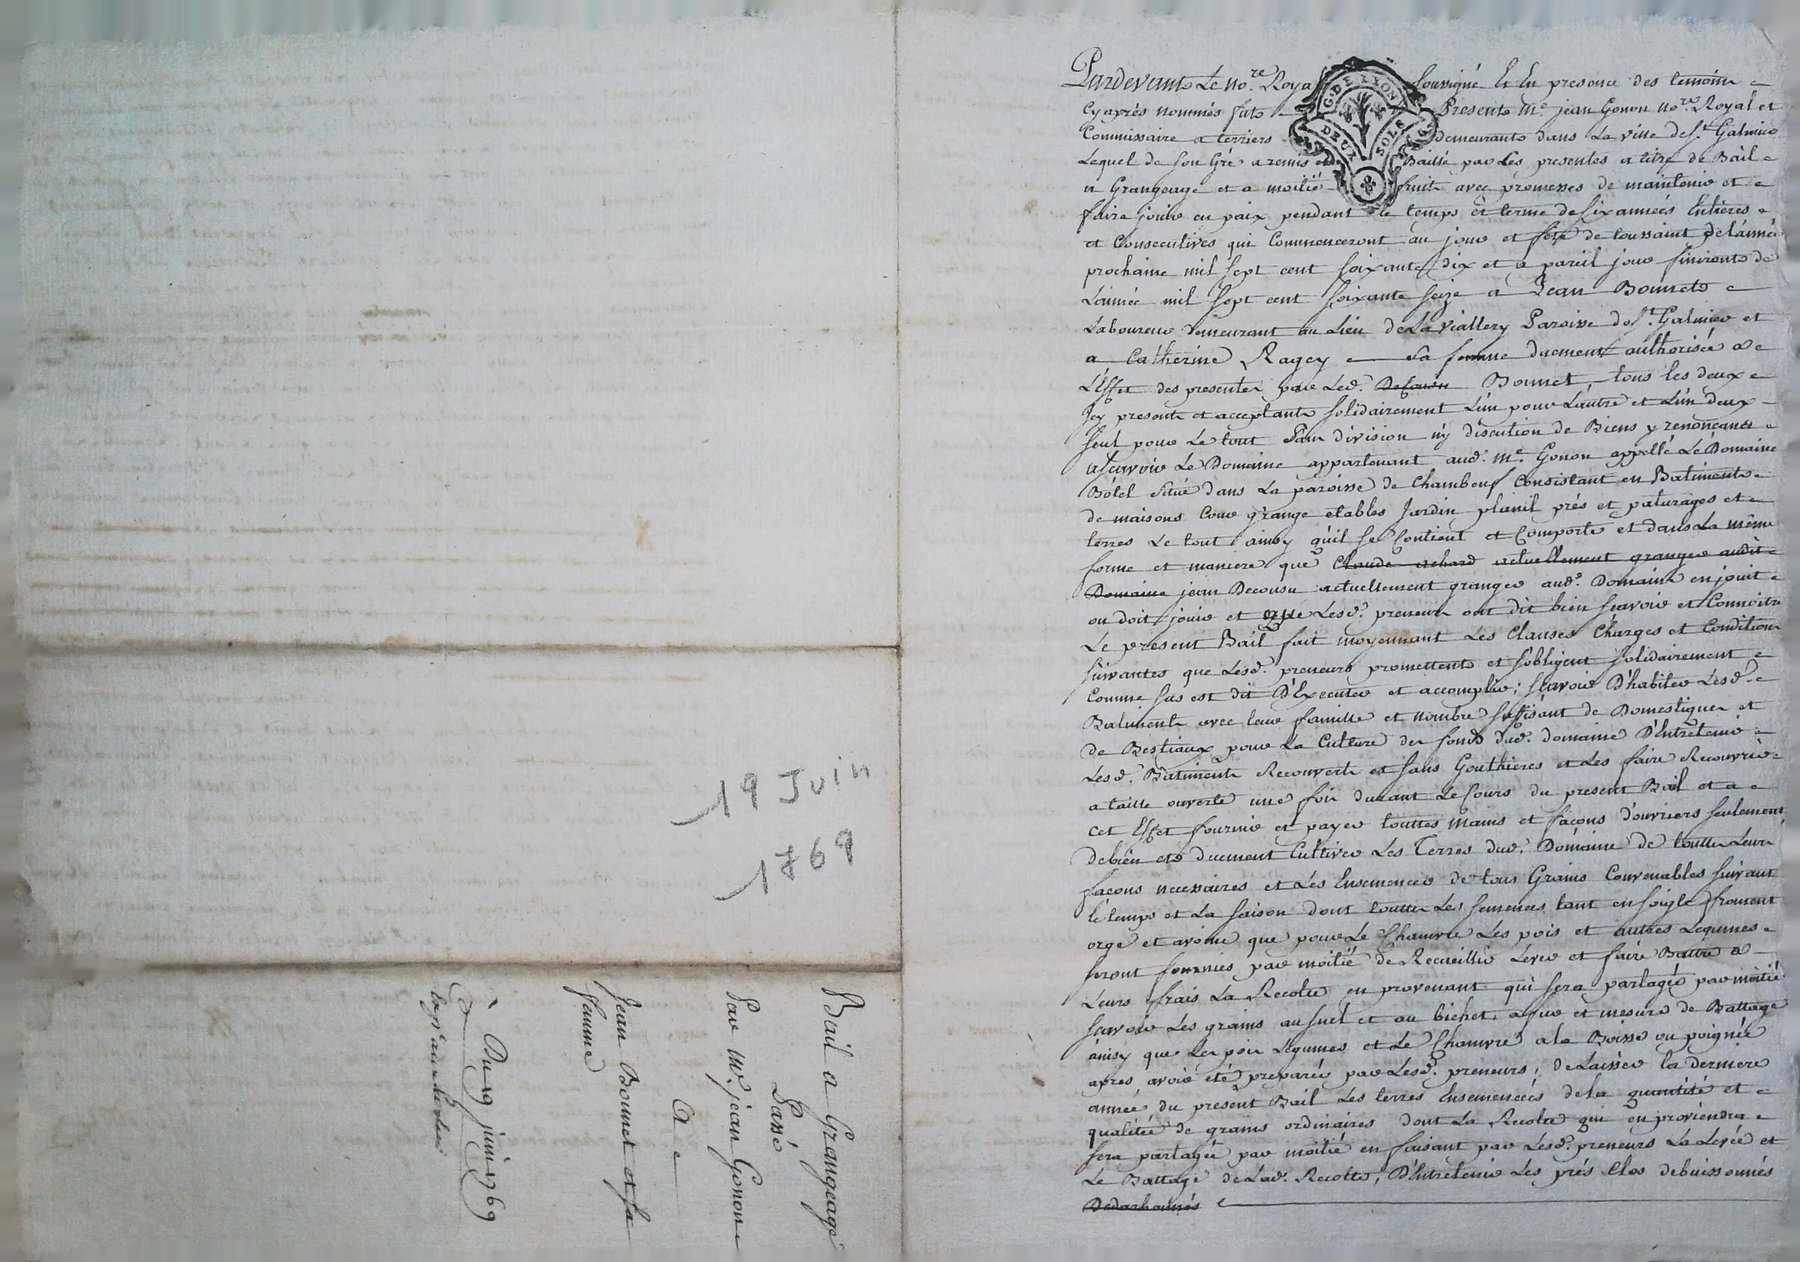 19 Juin
1769
Bail a Grangeage
Passé
Par Me. jean Gonon
A
Jean Bonnet et sa
femme
Du 19 juin 1769
Pardevant Le nore. Royal soussigné Et En presence des temoins
Cyaprés nommés fut Present Me. jean Gonon nore. Royal et
Commissaire a terriers demeurant dans La ville de St. Galmier
Lequel de son Gré a remis et Baillé par Les presentes a titre de Bail
a Grangeage et a moitié fruits avec promesses de maintenir et
faire jouir en paix pendant le temps et terme de six années Entieres
et Consecutives qui Commenceront au jour et fete de toussaint de l'année
prochaine mil sept cent soixante dix et a pareil jour finiront de
L'année mil sept cent soixante seize a Jean Bonnet
Laboureur demeurant au Lieu de La viallery Paroisse de St. Galmier et
a Catherine Ragey sa femme duement authorisée a
L'Effet des presentes par Led. Bonnet, tous les deux
Icy presents et acceptants solidairement L'un pour L'autre et L'un d'eux
seul pour Le tout sans division ny discution de Biens y renonçants
a sçavoir Le Domaine appartenant aud. Me. Gonon appellé Le Domaine
Bôtel situé dans La paroisse de Chambeuf Consistant en Batiments
de maisons Cour grange etables Jardin plantil prés et paturages et
terres Le tout ainsy qu'il se Contient et Comporte et dans La même
forme et maniere que Claude Achard actuellement granger audit
Domaine jean Decousu actuellement granger aud. Domaine en jouit
ou doit jouir et que Lesd. preneurs ont dit bien sçavoir et Connoitre
Le present Bail fait moyennant Les Clauses Charges et Conditions
suivantes que Lesd. preneurs promettent et s'obligent solidairement
Comme sus est dit D'Executer et accomplir; sçavoir D'habiter Lesd.
Batiments avec leur famille et nombre suffisant de Domestiques et
de Bestiaux pour La Culture des fonds dud. domaine D'Entretenir
Lesd. Bâtiments Recouverts et sans Gouthieres et Les faire Recouvrir
a taille ouverte une fois durant Le Cours du present Bail et a
cet Effet fournir et payer touttes mains et façons d'ouvriers seulement
de bien et duement Cultiver Les Terres dud. Domaine de touttes Leurs
façons necessaires et Les Ensemencer de tous Grains Convenables suivant
le temps et La saison dont touttes Les semences tant en soigle froment
orge et avoine que pour Le Chanvre Les pois et autres Legumes
seront fournies par moitié de Recueillir Lever et faire Battre a
Leurs frais La Recolte en provenant qui sera partagée par moitié
sçavoir Les grains au suel et au bichet, a fur et mesure de Battage
ainsy que Les pois Legumes et Le Chanvre a la Boisse ou poignée
apres avoir été preparée par Lesd. preneurs; de Laisser la derniere
année du present Bail Les terres Ensemencées de la quantité et
qualitée de grains ordinaires dont La Recolte qui en proviendra
sera partagée par moitié en faisant par Lesd. preneurs La Levée et
Le Battage de Lad. Recolte, D'Entretenir Les prés Clos debuissonnés